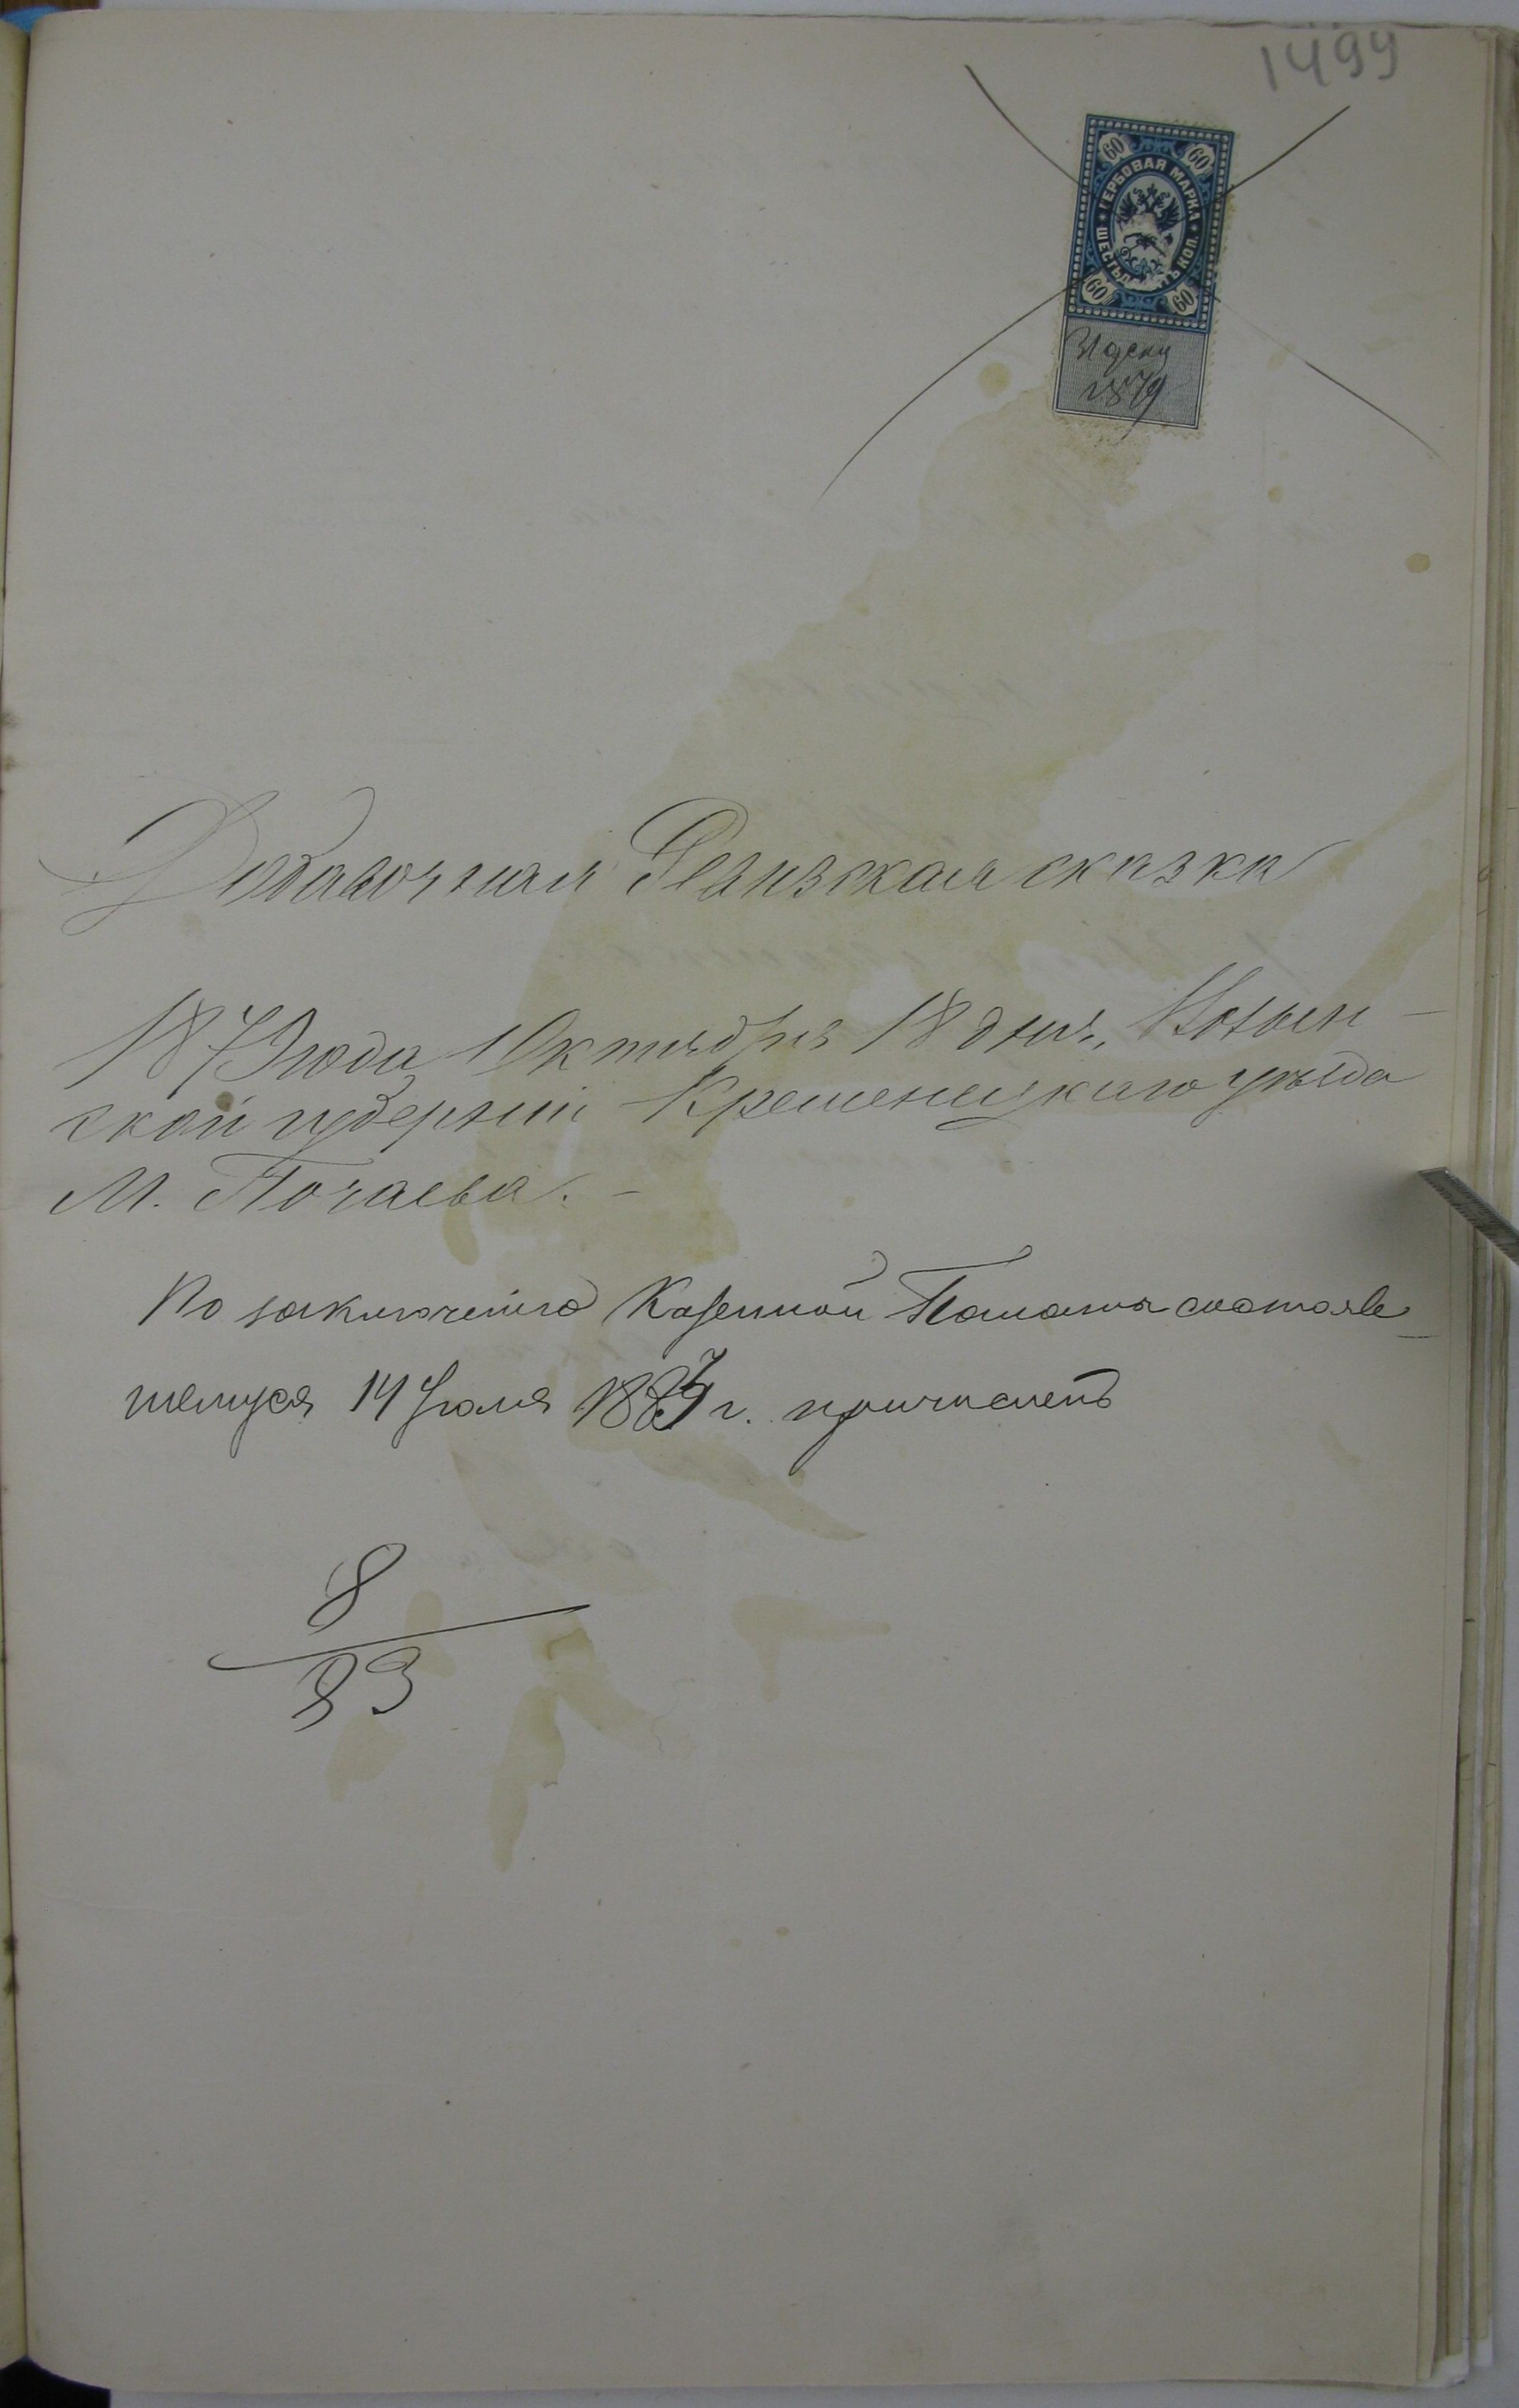 1499
60 60
ГЕРБОВАЯ МАРКА
ШЕСТЬДЕСЯТЪ КОП.
60 60
31 декаб
1879
Добавочная Ревизская сказка
1879 года Октября 18 дня, Волын-
ской губерніи Кременецкаго уѣзда
М. Почаева. -
По заключенію Казенной Палаты состояв
шемуся 14 Іюля 1887 г. причисленъ
8
33